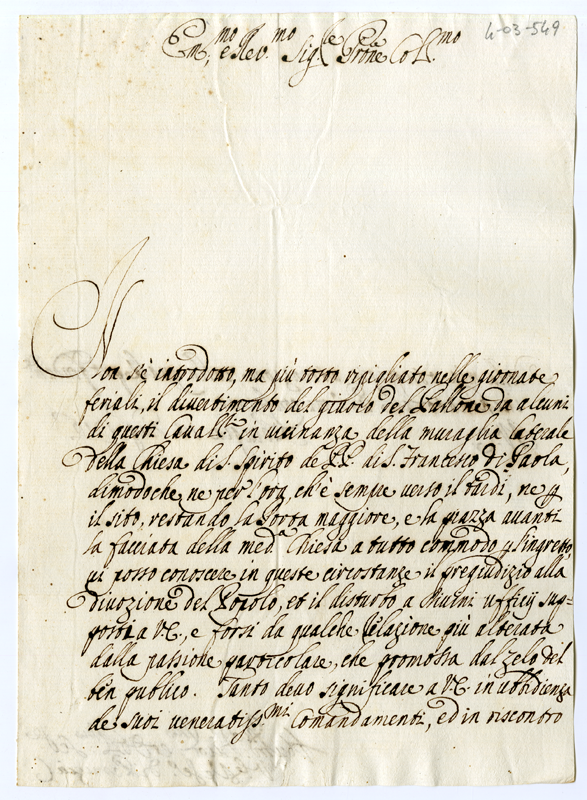 4-03-549
Em.mo e Rev.mo Sig.le Prone Coll.mo
Non s'è introdotto, ma più tosto ripigliato nelle giornate
feriali, il divertimento del giuoco del Pallone da alcuni
di questi Caval.ri in vicinanza della muraglia laterale
della Chiesa di S. Spirito de PP. di S. Francesco di Paola,
dimodoche, ne per l'ora, ch'è sempre verso il tardi, ne p
il sito, restando la Porta maggiore, e la piazza avanti
la facciata della med.a Chiesa a tutto commodo p l'ingresso,
vi posso conoscere in queste circostanze il pregiudizio alla
divozione del Popolo, et il disturbo a Divini ufficij sup=
posti a V.E., e forsi da qualche Relazione più alterata
dalla passione particolare, che promossa dal zelo del
ben publico. Tanto devo significare a V.E. in ubbidienza
de suoi veneratiss.mi Comandamenti, ed in riscontro